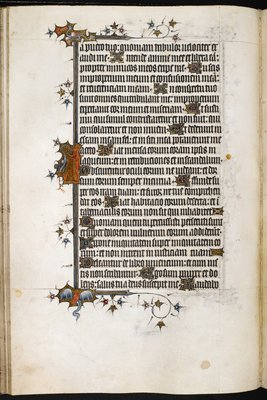 a puero tuo: quoniam tribulor velociter ex
audi me. Intende anime mee et libera eam
propter inimicos meos eripe me. Tu scis
improperium meum et confusionem meam:
et reverentiam meam. In conspectu tuo
sunt omnes qui tribulant me: improperium
expectavit cor meum et miseriam. Et susti
nui qui simul contristaretur et non fuit: et qui
consolaretur et non inveni. Et dederunt in
escam meam fel: et in siti mea potaverunt me
aceto. Fiat mensa eorum coram ipsis in la
queum: et in retributiones et in scandalum.
Obscurentur oculi eorum ne videant: et dor
sum eorum semper incurva. Effunde su
per eos iram tuam: et furor ire tue comprehen
dat eos. Fiat habitatio eorum deserta: et in
tabernaculis eorum non sit qui inhabitet.
Quoniam quem tu percussisti persecuti sunt
et super dolorem vulnerum meorum addiderunt.
Appone iniquitatem super iniquitatem eo
rum: et non intrent in iusticiam tuam.
Deleantur de libro viventium: et cum ius
tis non scribantur. Ego sum pauper et do
lens: salus tua deus suscepit me. Laudabo